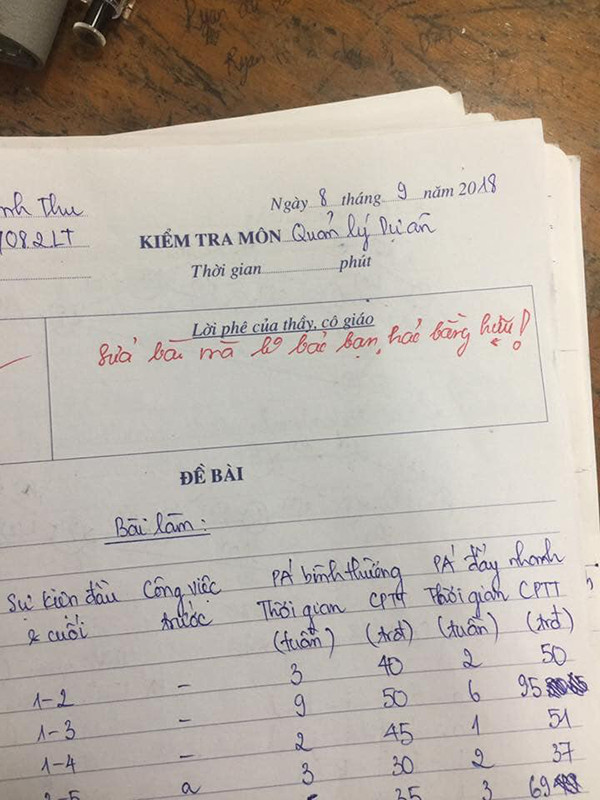 nh Thu
Ngày 8 tháng 9 năm 2018
1082LT
KIỂM TRA MÔN Quản lý Dự án
Thời gian phút
Lời phê của thầy, cô giáo
Sửa bài mà ko bảo bạn, hảo bằng hữu!
ĐỀ BÀI
Bài làm:
Sự kiện đầu Công việc PÁ bình thường PÁ đẩy nhanh
& cuối trước Thời gian CPTT Thời gian CPTT
(tuần) (trđ) (tuần) (trđ)
1-2 - 3 40 2 50
1-3 - 9 50 6 95
1-4 - 2 45 1 51
2-5 a 3 30 2 37
35 3 69